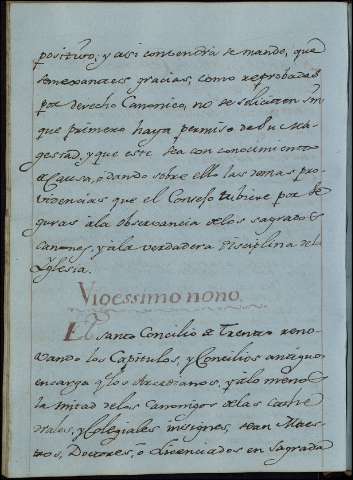 positivo, y assi convendrá se mande, que
semexantes gracias, como reprobadas
por derecho Canonico, no se soliciten sin
que primero haya permiso de Su Ma-
gestad, y que este sea con conocimiento
de Causa, o dando sobre ello las demas pro-
videncias que el Consejo tubiere por se-
guras à la observancia de los sagrados
Canones, y à la verdadera disciplina de la
Yglesia.
Vigessimo nono
El santo Concilio de Trento reno-
vando los Capitulos, y Concilios antiguos
encarga q.e los Arcedianos, y à lo menos
la mitad de los Canonigos de las Cathe-
drales, y Colegiales insignes, sean Maes-
tros, Doctores, ò Licenciados en Sagrada